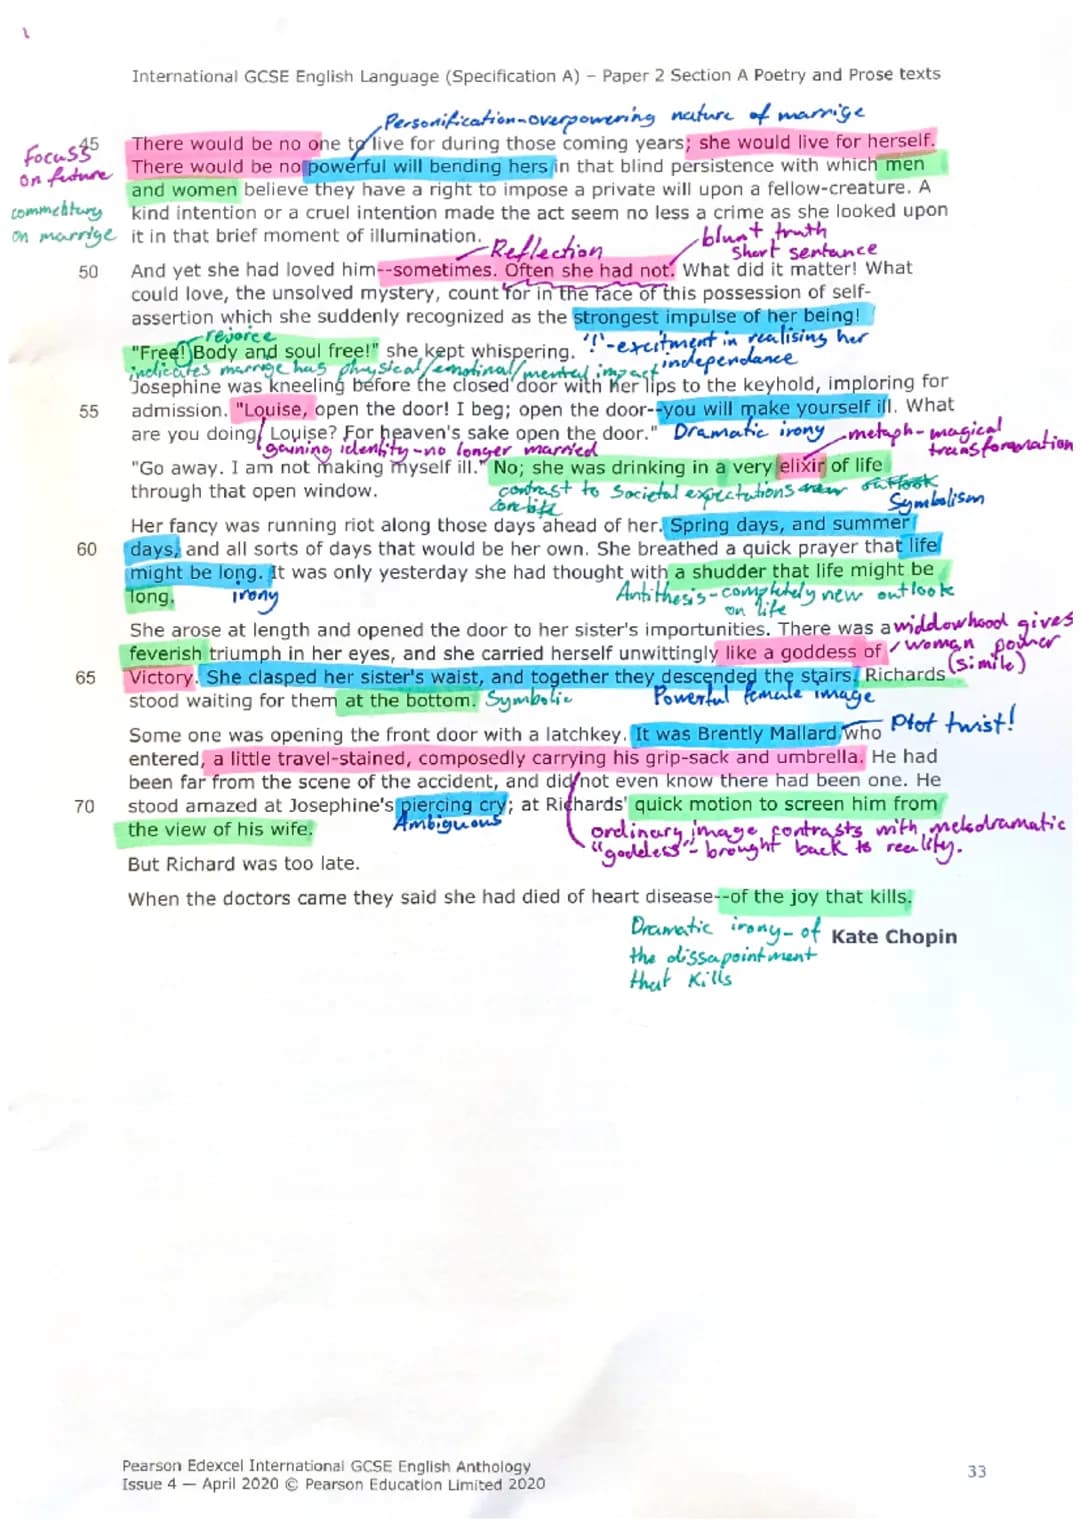 International GCSE English Language (Specification A) – Paper 2 Section A Poetry and Prose texts
Personification-overpowering nature of marrige
45 There would be no one to live for during those coming years; she would live for herself.
Focuss
on future
There would be no powerful will bending hers in that blind persistence with which men
and women believe they have a right to impose a private will upon a fellow-creature. A
commentary
on marrige
kind intention or a cruel intention made the act seem no less a crime as she looked upon
it in that brief moment of illumination.
Reflection
blunt truth
short sentance
50 And yet she had loved him--sometimes. Often she had not. What did it matter! What
could love, the unsolved mystery, count for in the face of this possession of self-
assertion which she suddenly recognized as the strongest impulse of her being!
rejoice
'!'-excitment in realising her
independance
"Free! Body and soul free!" she kept whispering.
indicates marrige has physical/emotinal/mental impact
Josephine was kneeling before the closed door with her lips to the keyhold, imploring for
55 admission. "Louise, open the door! I beg; open the door--you will make yourself ill. What
are you doing, Louise? For heaven's sake open the door."
Dramatic irony
metaph-magical
transformation
gaining identity-no longer married
"Go away. I am not making myself ill." No; she was drinking in a very elixir of life
through that open window.
contrast to societal expectations new outlook
Symbolism
Her fancy was running riot along those days ahead of her. Spring days, and summer
60 days, and all sorts of days that would be her own. She breathed a quick prayer that life
might be long. It was only yesterday she had thought with a shudder that life might be
long.
irony
Antithesis-completely new outlook
on life
She arose at length and opened the door to her sister's importunities. There was a
widdowhood gives
woman power
(simile)
feverish triumph in her eyes, and she carried herself unwittingly like a goddess of
65 Victory. She clasped her sister's waist, and together they descended the stairs. Richards
stood waiting for them at the bottom.
Symbolic
Powerful female image
Some one was opening the front door with a latchkey. It was Brently Mallard who
Plot twist!
entered, a little travel-stained, composedly carrying his grip-sack and umbrella. He had
been far from the scene of the accident, and did not even know there had been one. He
70 stood amazed at Josephine's piercing cry; at Richards' quick motion to screen him from
the view of his wife.
Ambiguous
ordinary image contrasts with melodramatic
"goddess"- brought back to reality.
But Richard was too late.
When the doctors came they said she had died of heart disease--of the joy that kills.
Dramatic irony- of
the dissapointment
that kills
Kate Chopin
Pearson Edexcel International GCSE English Anthology
Issue 4 — April 2020 © Pearson Education Limited 2020
33